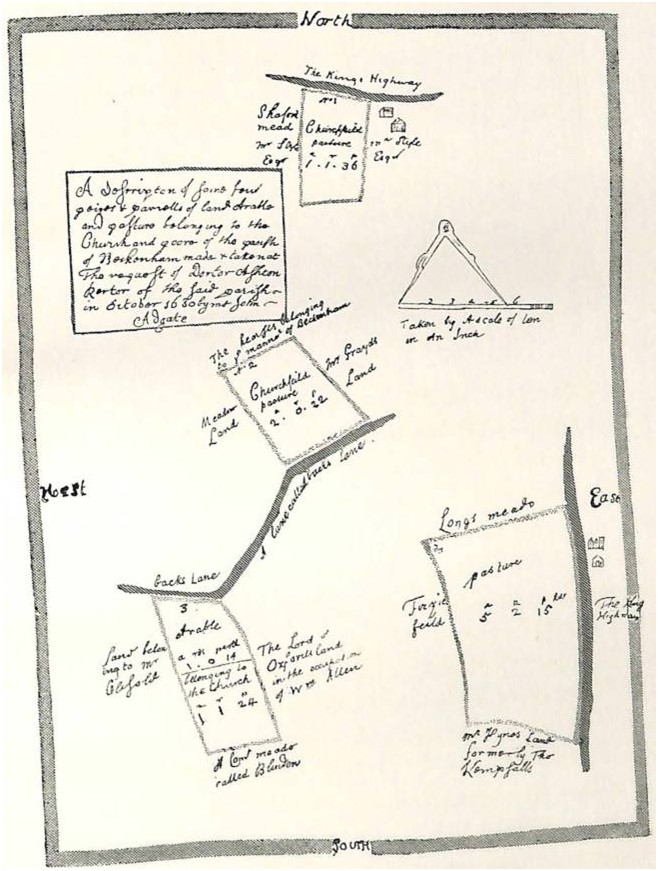 North
The Kings Highway
No 1
Shaford
mead
Mr Slife
Esqr
Churchfeild
pasture
1 . 1 . 36
Mr Slife
Esqr
A Desscription of some four
peices & parcells of land Arable
and pasture belonging to the
Church and poore of the parish
of Beckenham made & taken at
The request of Doctor Asheton
Rector of the said parish
in October 16 by me John
Adgate
2 3 4 5 6
Taken by A scale of ten
in An Inch
The belonging
to manner of Beckenham
2
Churchfeild
pasture
2 . 0 . 22
Meadow
Land
Mr Grayds
Land
A Lane called backs Lane
West
East
backs Lane
3
Arable
1 . 0 . 14
belonging to
the Church
1 1 24
Land belon
ing to Mr
The Lord of
Oxfords land
in the occupation
of Wm Allen
A Cow meado
called Blindon
Longs meado
pasture
5 2 15
feild
The King
Highway
Mr Hynes Land
formerly Tho
Kempsalls
South